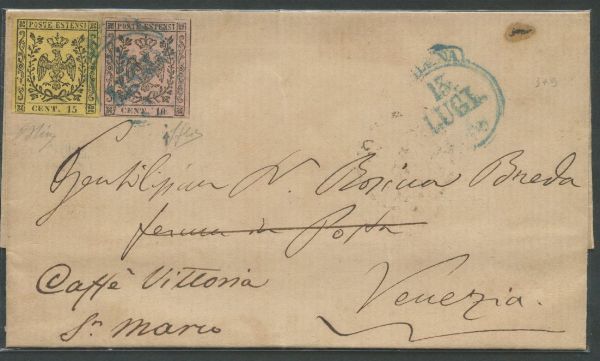 POSTE ESTENSI
CENT. 15
POSTE ESTENSI
CENT. 10
13
LUG.
349
Rosina Breda
ferma in Posta
Caffè Vittoria
Sn Marco
Venezia.